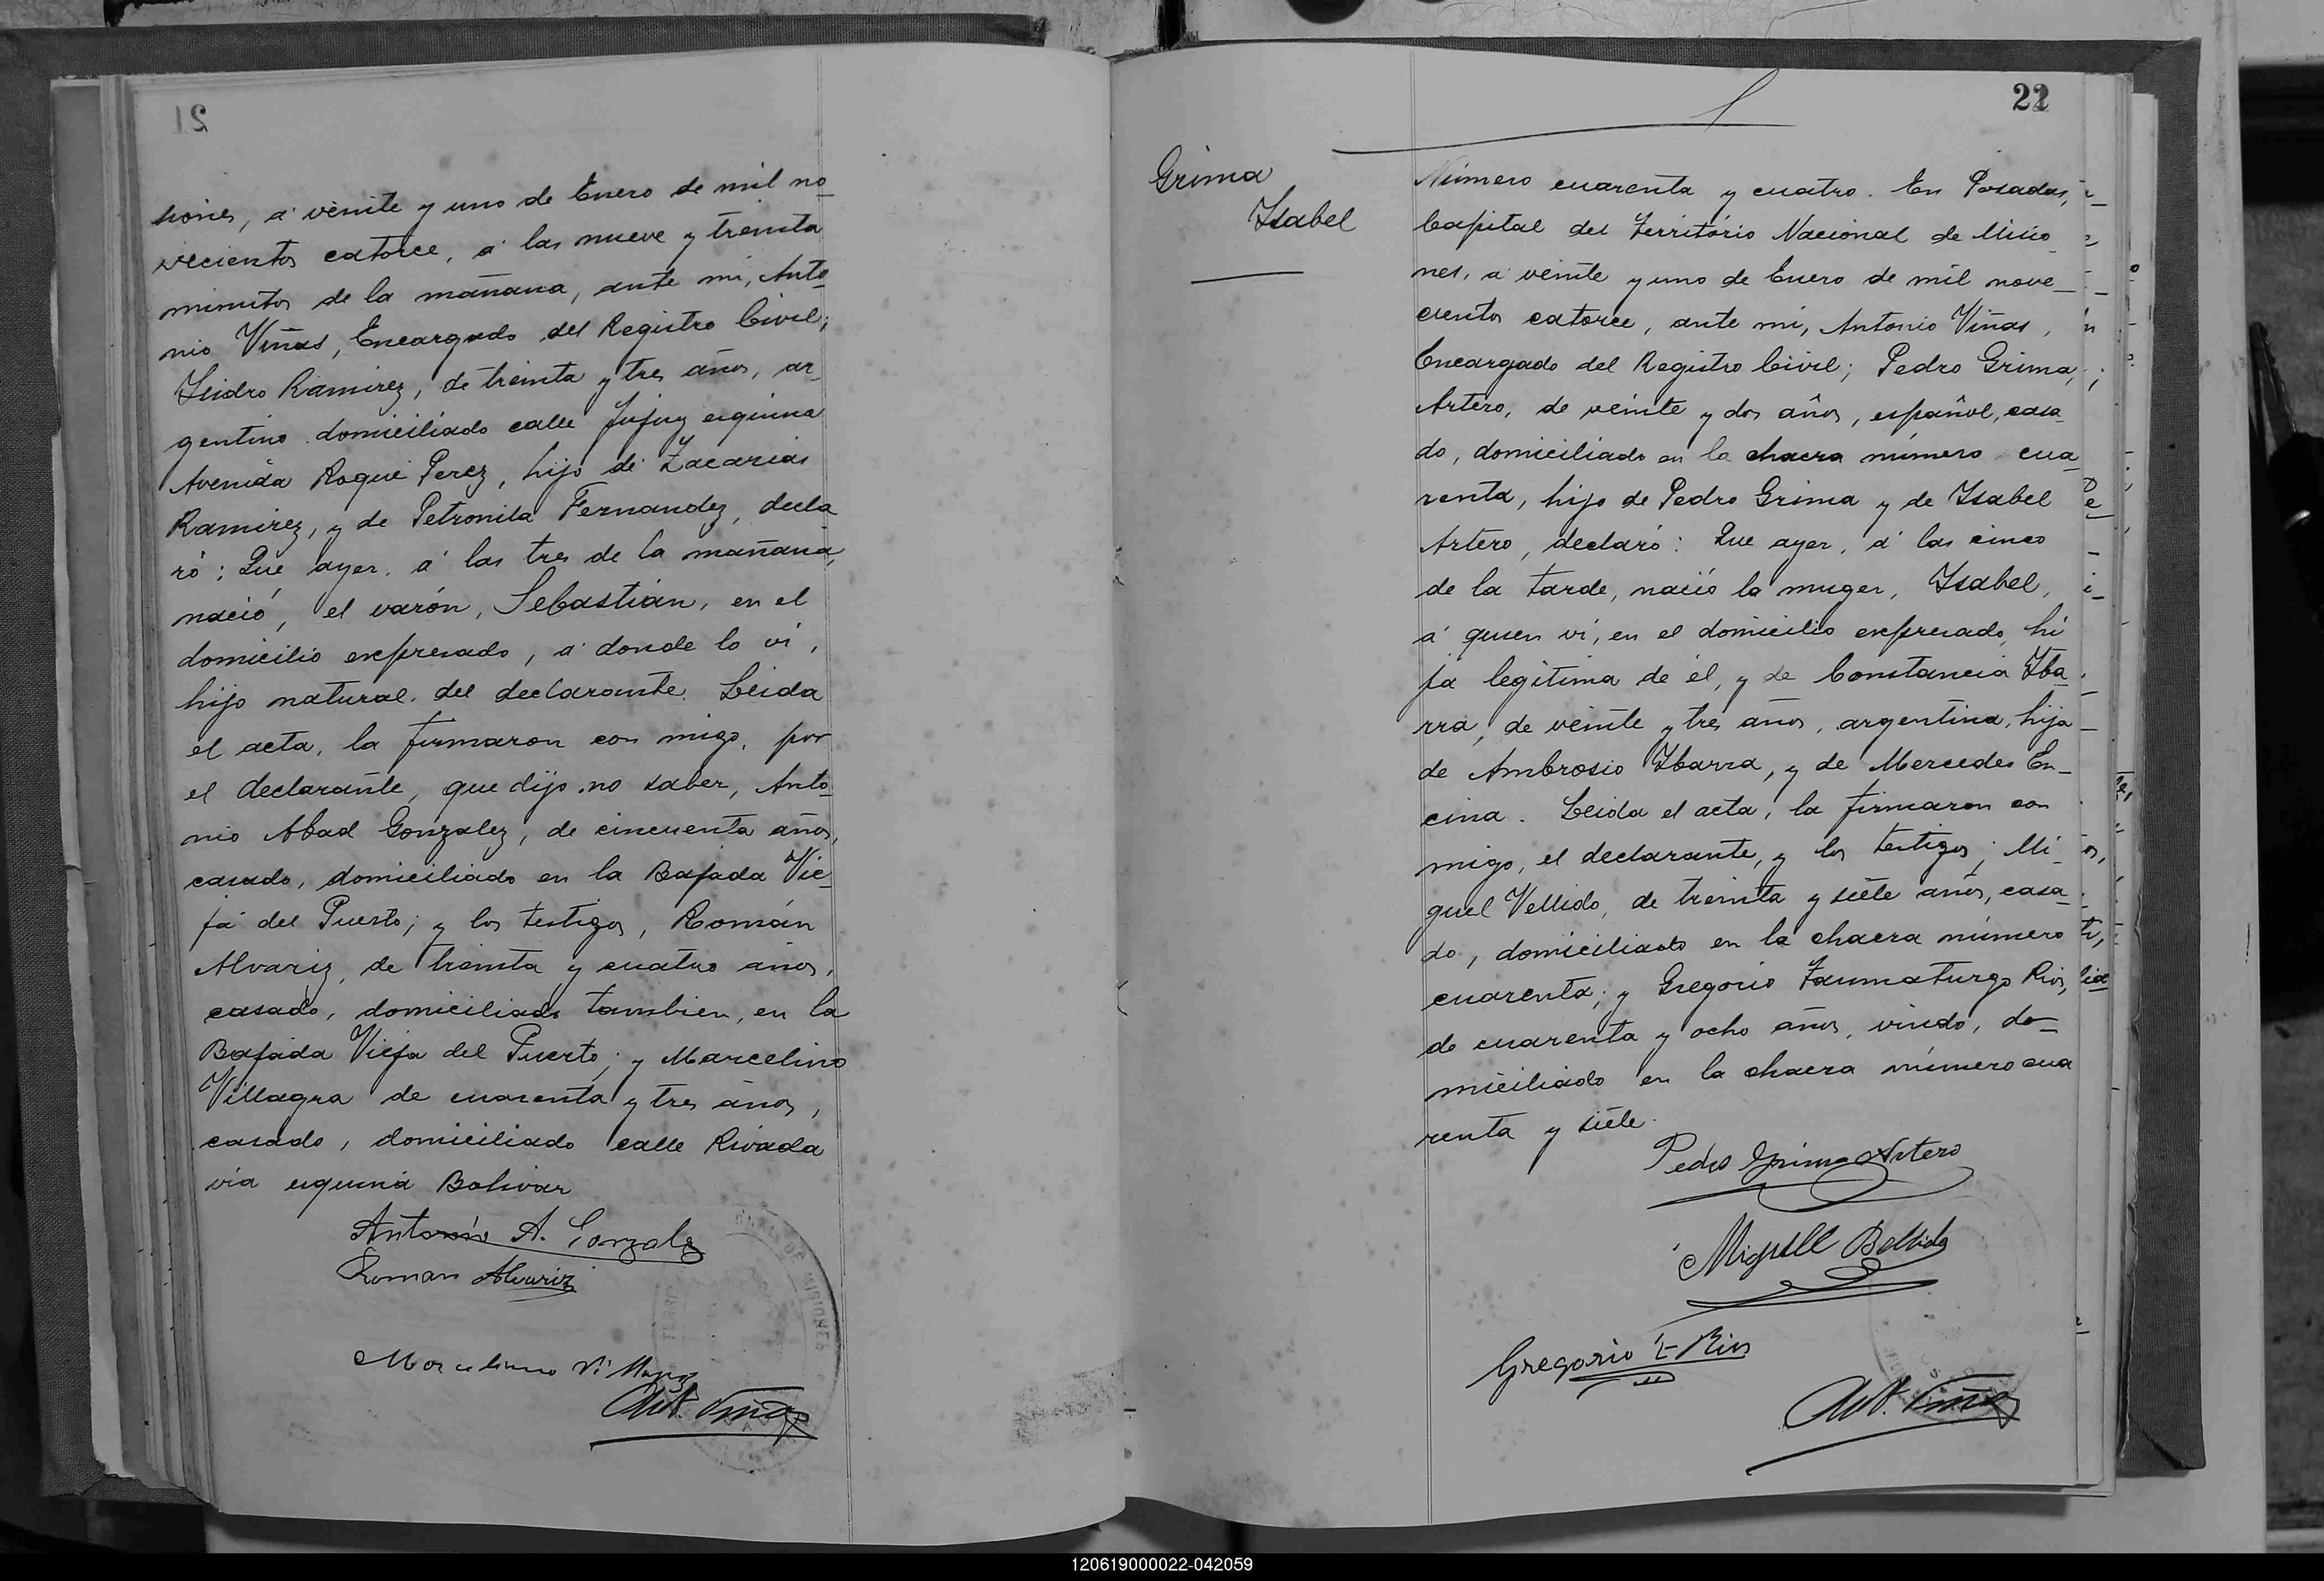 21
siones, á veinte y uno de Enero de mil no_
vecientos catorce, á las nueve y treinta
minutos de la mañana, ante mi, Anto_
nio Viñas, Encargado del Registro Civil;
Isidro Ramirez, de treinta y tres años, ar_
gentino domiciliado calle Jujuy esquina
Avenida Roque Perez, hijo de Zacarias
Ramirez, y de Petronila Fernandez, decla_
ró: Que ayer, á las tres de la mañana,
nació, el varón, Sebastián, en el
domicilio expresado, á donde lo vi,
hijo natural del declarante. Leida
el acta, la firmaron con migo, por
el declarante, que dijo no saber, Anto_
nio Abad Gonzalez, de cincuenta años,
casado, domiciliado en la Bajada Vie_
ja del Puerto; y los testigos, Román
Alvariz, de treinta y cuatro años,
casado, domiciliado tambien, en la
Bajada Vieja del Puerto; y Marcelino
Villagra de cuarenta y tres años,
casado, domiciliado calle Rivada
via esquina Bolivar
Antonio A. Gonzalez
Roman Alvariz
Marcelino
Ant. Viñas
22
Grima
Isabel
Número cuarenta y cuatro. En Posadas,
Capital del Territorio Nacional de Misio
nes, á veinte y uno de Enero de mil nove_
cientos catorce, ante mi, Antonio Viñas,
Encargado del Registro Civil; Pedro Grima
Artero, de veinte y dos años, español, casa_
do, domiciliado en la chacra número cua_
renta, hijo de Pedro Grima y de Isabel
Artero, declaró: Que ayer, á las cinco
de la tarde, nació la muger, Isabel,
á quien vi, en el domicilio expresado, hi
ja legitima de él, y de Constancia Iba_
rra, de veinte y tres años, argentina, hija
de Ambrosio Ibarra, y de Mercedes En_
cina. Leida el acta, la firmaron con
migo, el declarante, y los testigos; Mi_
guel Vellido, de treinta y siete años, casa_
do, domiciliado en la chacra número
cuarenta; y Gregorio Taumaturgo Rios,
de cuarenta y ocho años, viudo, do_
miciliado en la chacra número cua
renta y siete.
Pedro Grima Artero
Miguell Bellido
Gregorio T Rios
Ant. Viñas
120619000022-042059